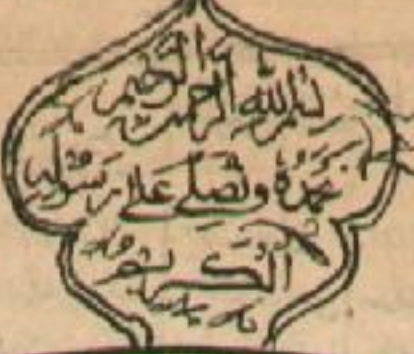 بسم الله الرحمن الرحيم
نحمده ونصلى على رسوله
الكريم